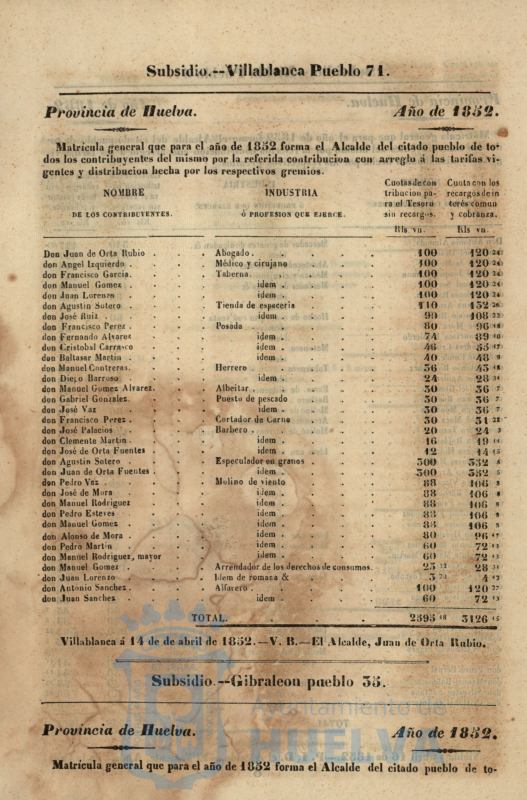 Subsidio.--Villablanca Pueblo 71.
Provincia de Huelva. Año de 1852.
Matrícula general que para el año de 1852 forma el Alcalde del citado pueblo de to-
dos los contribuyentes del mismo por la referida contribucion con arreglo á las tarifas vi-
gentes y distribucion hecha por los respectivos gremios.
NOMBRE DE LOS CONTRIBUYENTES. INDUSTRIA Ó PROFESION QUE EJERCE. Cuotas de contribucion para el Tesoro sin recargos. Rls vn. Cuota con los recargos de interés comun y cobranza. Rls vn.
Don Juan de Orta Rubio Abogado. 100 120 24
don Angel Izquierdo Médico y cirujano 100 120 24
don Francisco Garcia. Taberna. 100 120 24
don Manuel Gomez idem 100 120 24
don Juan Lorenzo idem 100 120 24
don Agustin Sotero Tienda de espaceria 110 132
don José Ruiz idem 90 108 22
don Francisco Perez Posada 80 96
don Fernando Alvarez idem 74 89
don Cristobal Carrasco idem 46 55 17
don Baltasar Martin idem 40 48
don Manuel Contreras. Herrero 36 43
don Diego Barroso idem 24 28 31
don Manuel Gomez Alvarez. Albeitar 30 36 7
don Gabriel Gonzalez. Puesto de pescado 30 36 7
don José Vaz idem 30 36 7
don Francisco Perez Cortador de Carne 30 31
don José Palacios Barbero 20 24
don Clemente Martin idem 16 19
don José de Orta Fuentes idem 12 14
don Agustin Sotero Especulador en granos 300 332
don Juan de Orta Fuentes idem 300 332
don Pedro Vaz Molino de viento 88 106
don José de Mora idem 88 106
don Manuel Rodriguez idem 88 106
don Pedro Esteves idem 88 106
don Manuel Gomez idem 88 106
don Alonso de Mora idem 80 96
don Pedro Martin idem 60 72
don Manuel Rodriguez, mayor idem 60 72
don Manuel Gomez Arrendador de los derechos de consumos. 23 28
don Juan Lorenzo Idem de romana & 3 4
don Antonio Sanchez Alfarero 100 120 27
don Juan Sanchez idem 60 72
TOTAL. 2595 3126
Villablanca á 14 de de abril de 1852.—V. B.—El Alcalde, Juan de Orta Rubio.
Subsidio.--Gibraleon pueblo 35.
Ayuntamiento de
HUELVA
Provincia de Huelva. Año de 1852.
Matrícula general que para el año de 1852 forma el Alcalde del citado pueblo de to-